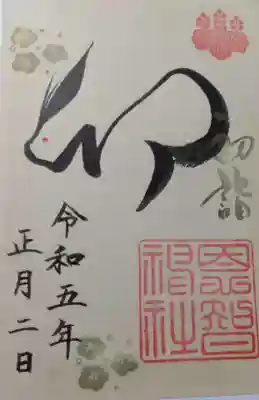 卯
初詣
恩智
神社
令和五年
正月二日